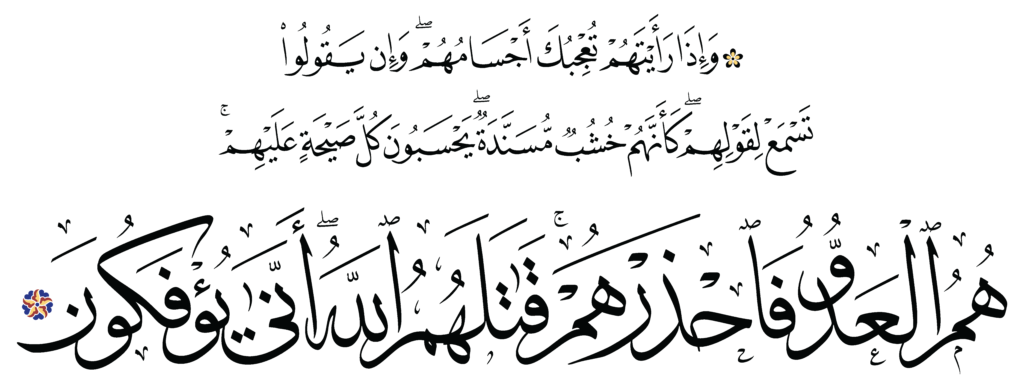 وَإِذَا رَأَيْتَهُمْ تُعْجِبُكَ أَجْسَامُهُمْ ۖ وَإِن يَقُولُوا۟
تَسْمَعْ لِقَوْلِهِمْ ۖ كَأَنَّهُمْ خُشُبٌ مُّسَنَّدَةٌ ۖ يَحْسَبُونَ كُلَّ صَيْحَةٍ عَلَيْهِمْ ۚ
هُمُ ٱلْعَدُوُّ فَٱحْذَرْهُمْ ۚ قَٰتَلَهُمُ ٱللَّهُ ۖ أَنَّىٰ يُؤْفَكُونَ